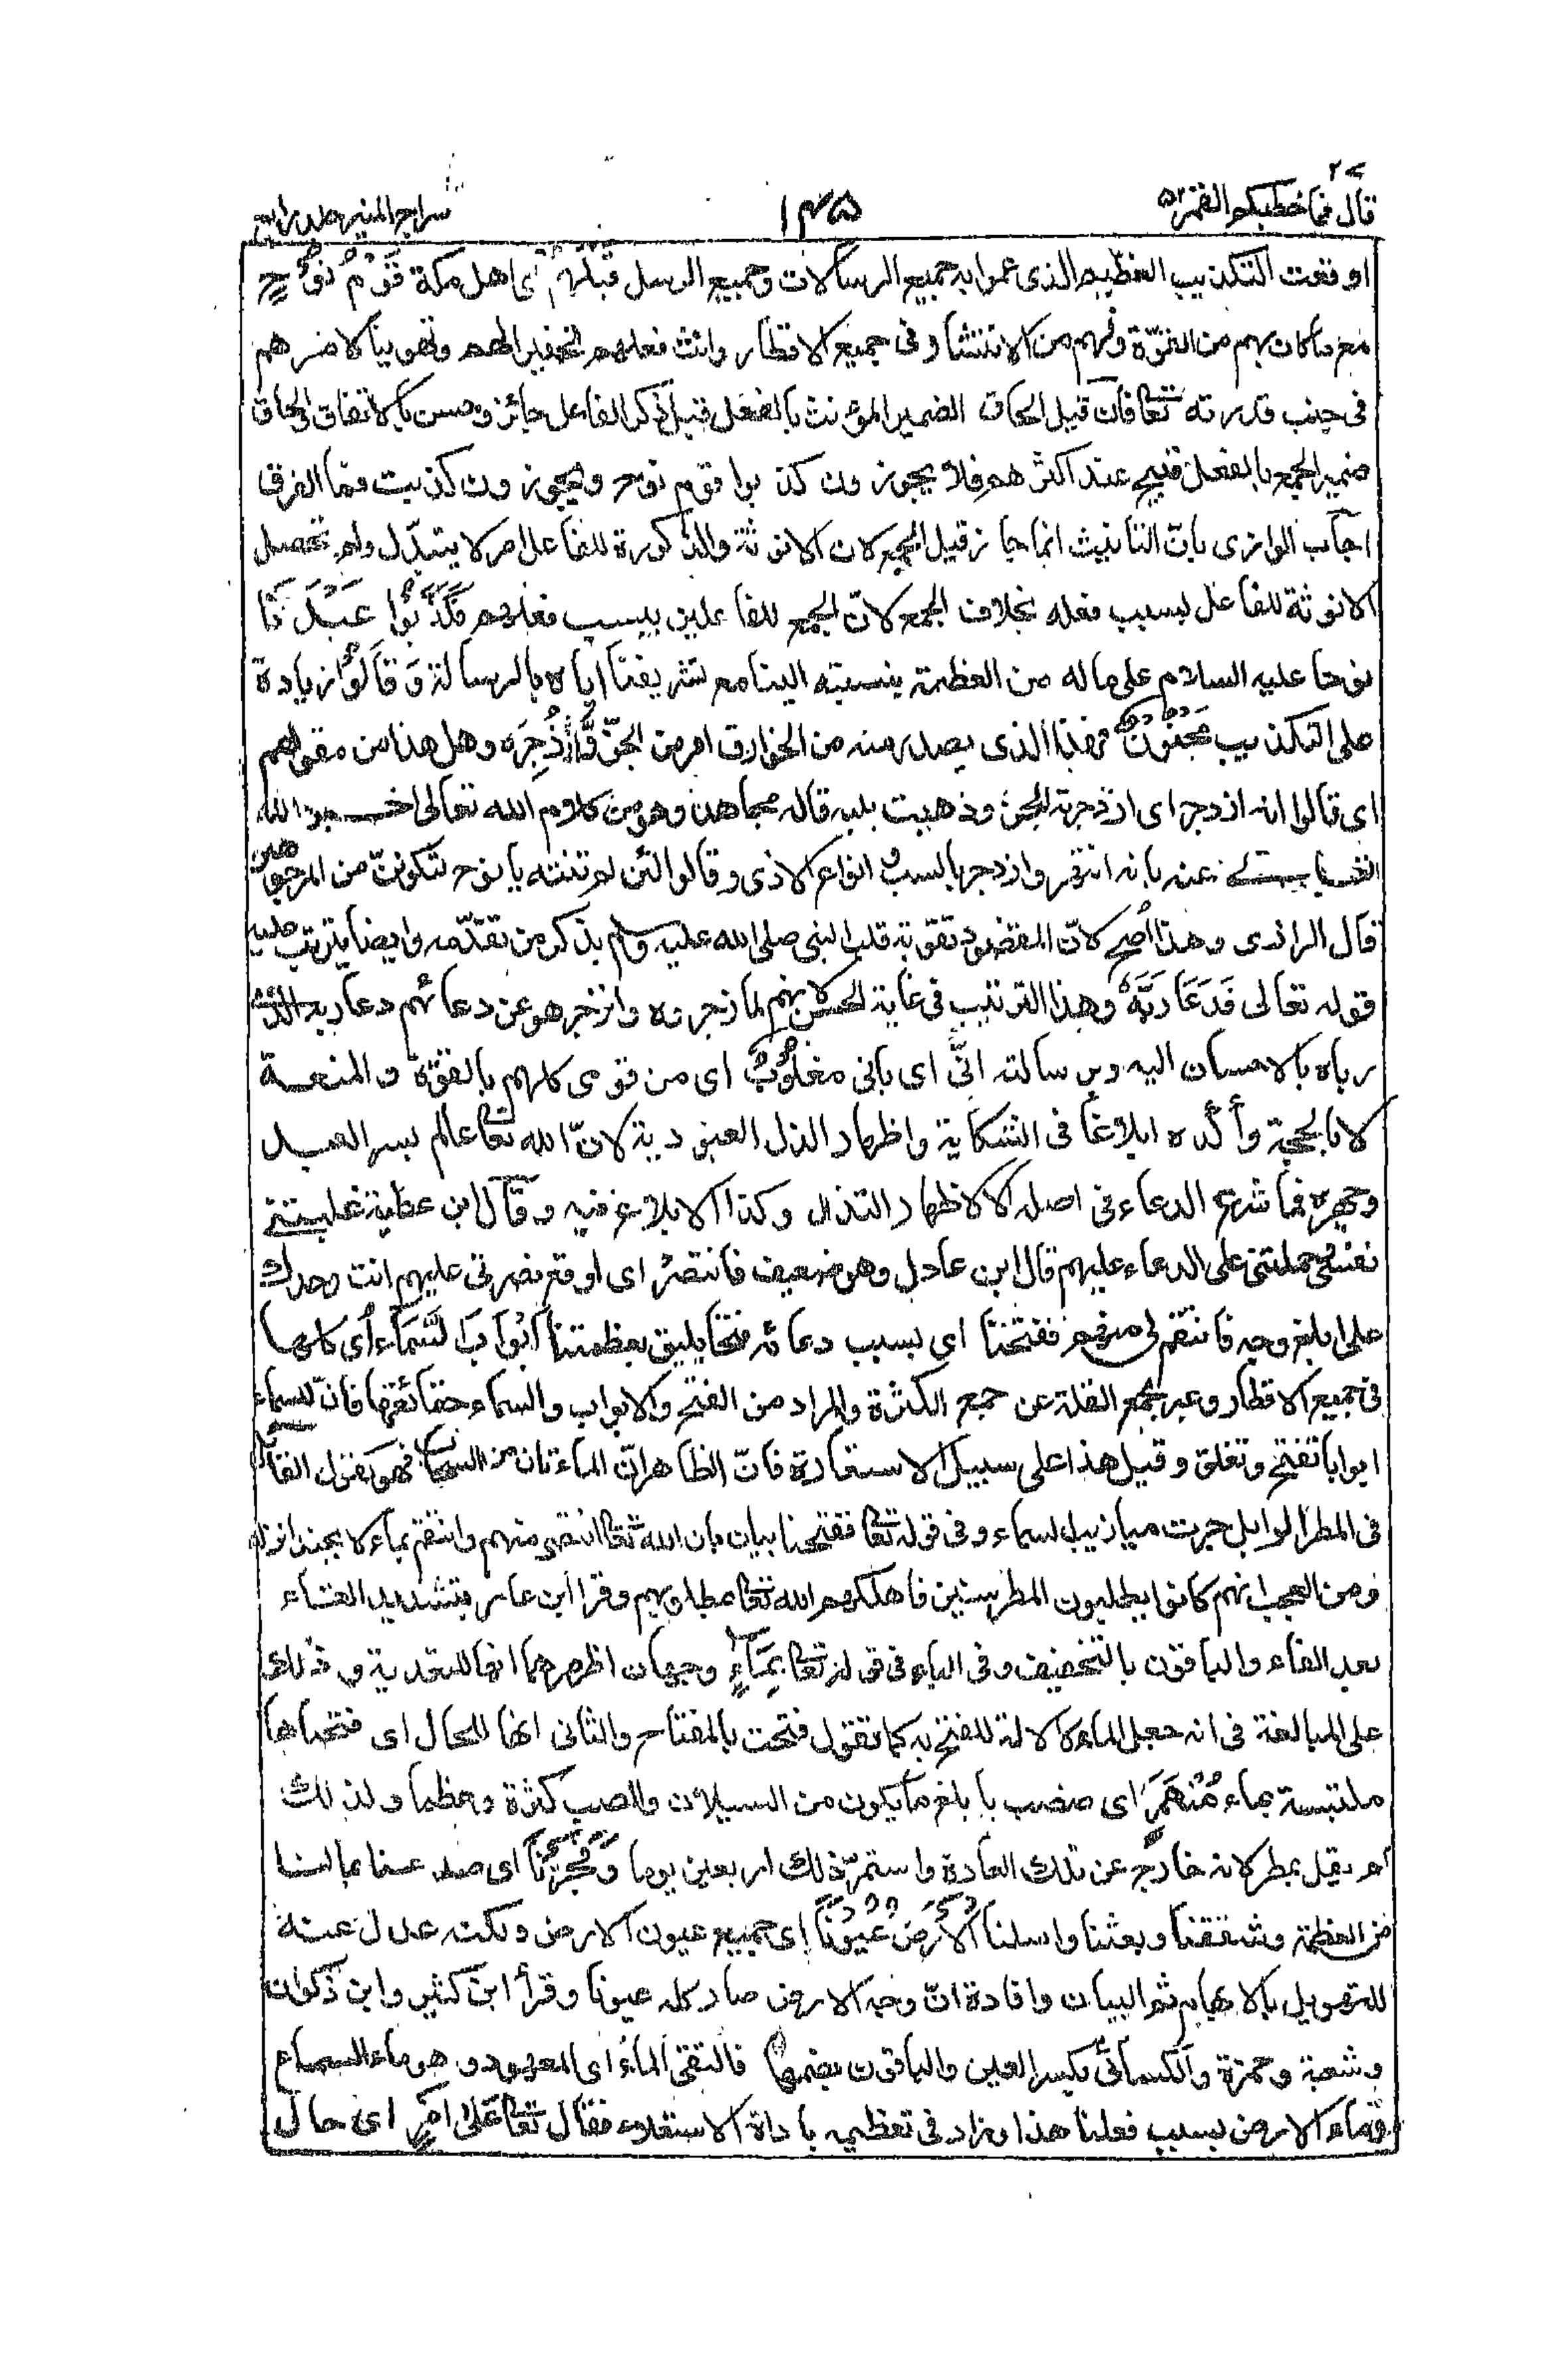 ٢٧
قال فما خطبكم القمر ٥٤
١٤٥
سراج المنير جلد رابع
اوقعت التكذيب العظيم الذى عموا به جميع الرسالات وجميع الرسل قبلهم اى اهل مكة قَوْمُ نُوْحٍ
مع ما كان بهم من القوّة ولهم من الانتشار فى جميع الاقطار وانث فعلهم تحقيرا لهم وتهوينا لامرهم
فى جنب قدرته تعالى فان قيل الحاق الضمير المؤنث بالفعل قبل ذكر الفاعل جائز وحسن بالاتفاق والحاق
ضمير الجمع بالفعل قبيح عند اكثرهم فلا يجوزون كذبوا قوم نوح ويجوزون كذبت فما الفرق
اجاب الرازى بانّ التانيث انما جاز قبل الجمع لان الانوثة والذكورة للفاعل امر لا يتبدّل ولم تحصل
الانوثة للفاعل بسبب فعله بخلاف الجمع لانّ الجمع للفاعلين بسبب فعلهم فَكَذَّبُوْا عَبْدَنَا
نوحا عليه السلام على ماله من العظمة بنسبته الينا مع تشريفنا اياه بالرسالة وَقَالُوْا زيادة
على التكذيب مَجْنُوْنٌ فهذا الذى يصدر منه من الخوارق امر من الجنّ وَّازْدُجِرَ وهل هذا من مقولهم
اى قالوا انه ازدجر اى ازدجرته الجن وذهبت بلبه قاله مجاهد وهو من كلام الله تعالى اخبر الله
عنه بانه انتهر وازدجر بالسبّ وانواع الاذى وقالوا لئن لم تنته يا نوح لتكوننّ من المرجومين
قال الرازى وهذا اصح لانّ المقصود تقوية قلب النبى صلى الله عليه وسلم بذكر من تقدّمه وايضا يترتب عليه
قوله تعالى فَدَعَا رَبَّهٗ وهذا الترتيب فى غاية الحسن لانهم لما زجروه وانزجر هو عن دعائهم دعا ربه الذى
رباه بالاحسان اليه وبرسالته انِّى اى بانى مغلُوْبٌ اى من قومى كلهم بالقوّة والمنعة
لا بالحجة وأكّده ابلاغا فى الشكاية واظهارا لذل العبودية لانّ الله تعالى عالم بسر العبد
وجهره فما شرع الدعاء فى اصله الا لاظهار التذلل وكذا الابلاغ فيه وقال ابن عطية غلبتنى
نفسى وحملتنى على الدعاء عليهم قال ابن عادل وهو ضعيف فانتصرْ اى اوقع نصرتى عليهم انت وحدك
على ابلغ وجه فانتقم لى منهم ففتحنا اى بسبب دعائه فتحا يليق بعظمتنا اَبْوَابَ السَّمَآءِ اى كلها
فى جميع الاقطار وعبر بجمع القلة عن جمع الكثرة والمراد من الفتح والابواب والسماء حقائقها فانّ للسماء
ابوابا تفتح وتغلق وقيل هذا على سبيل الاستعارة فانّ الظاهر انّ الماء كان من السحاب فهو كقول القائل
فى المطر الوابل جرت ميازيب السماء وفى قوله تعالى ففتحنا بيان بان الله تعالى انتصر منهم وانتقم بماء لا بجند انزله
ومن العجب انهم كانوا يطلبون المطر سنين فاهلكهم الله تعالى بمطلوبهم وقرا ابن عامر بتشديد التاء
بعد الفاء والباقون بالتخفيف وفى الباء فى قوله تعالى بِمَآءٍ وجهان اظهرهما انها للتعدية وذلك
على المبالغة فى انه جعل الماء كالالة للفتح به كما تقول فتحت بالمفتاح والثانى انها للحال اى فتحناها
ملتبسة بماء مُنْهَمِرٍ اى منصب بابلغ ما يكون من السيلان والصب كثرة وعظما ولذلك
لم يقل بمطر لانه خارج عن تلك العادة واستمرّ ذلك اربعين يوما وَّفَجَّرْنَا اى صدعنا بما لنا
من العظمة وشققنا وبعثنا واسلنا الْاَرْضَ عُيُوْنًا اى جميع عيون الارض ولكنه عدل عنه
للتهويل بالابهام ثم البيان وافادة انّ وجه الارض صار كله عيونا وقرأ ابن كثير وابن ذكوان
وشعبة وحمزة والكسائىّ بكسر العين والباقون بضمها فالتقى الماءُ اى المعهود وهو ماء السماء
وماء الارض بسبب فعلنا هذا وزاد فى تعظيمه باداة الاستعلاء فقال تعالى عَلٰى اَمْرٍ اى حال